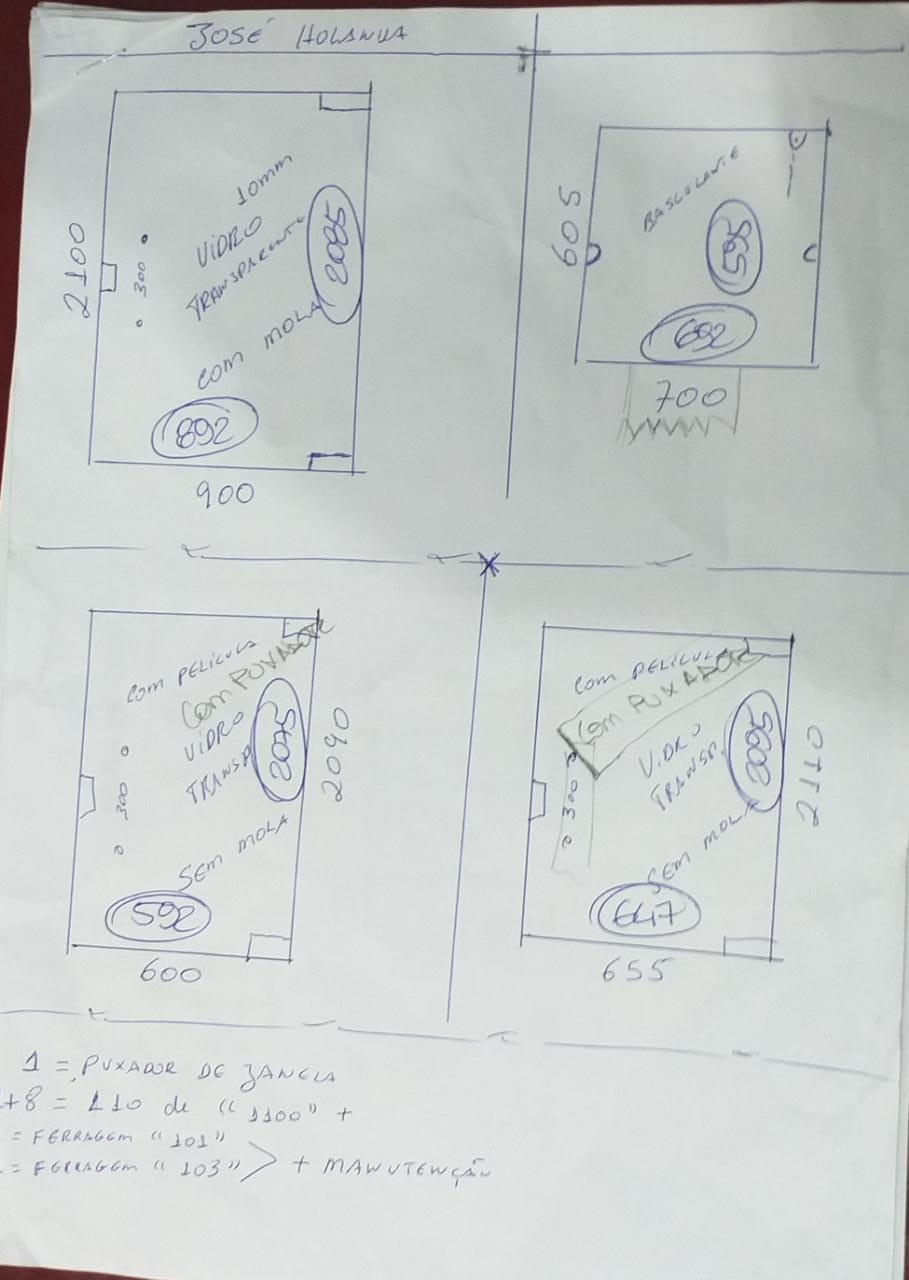 JOSÉ HOLANDA
2100
300
10mm
VIDRO
TRANSPARENTE
COM MOLA
2085
892
900
605
BASCULANTE
565
692
700
COM PELÍCULA
COM PUXADOR
VIDRO
TRANSP.
300
2075
2090
SEM MOLA
592
600
COM PELÍCULA
COM PUXADOR
VIDRO
TRANSP.
300
2110
SEM MOLA
647
655
1 = PUXADOR DE JANELA
+8 = 110 de "1100" +
= FERRAGEM "101"
= FERRAGEM "103" > + MANUTENÇÃO